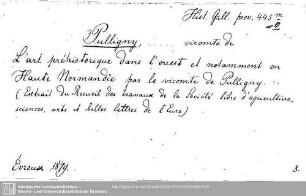 Hist. Gall. prov. 445 m
Pulligny, vicomte de
L'art préhistorique dans l'ouest et notamment en
Haute Normandie par le vicomte de Pulligny.
(Extrait du Recueil des travaux de la Société libre d'agriculture,
sciences, arts et belles lettres de l'Eure)
Évreux 1879. 8.